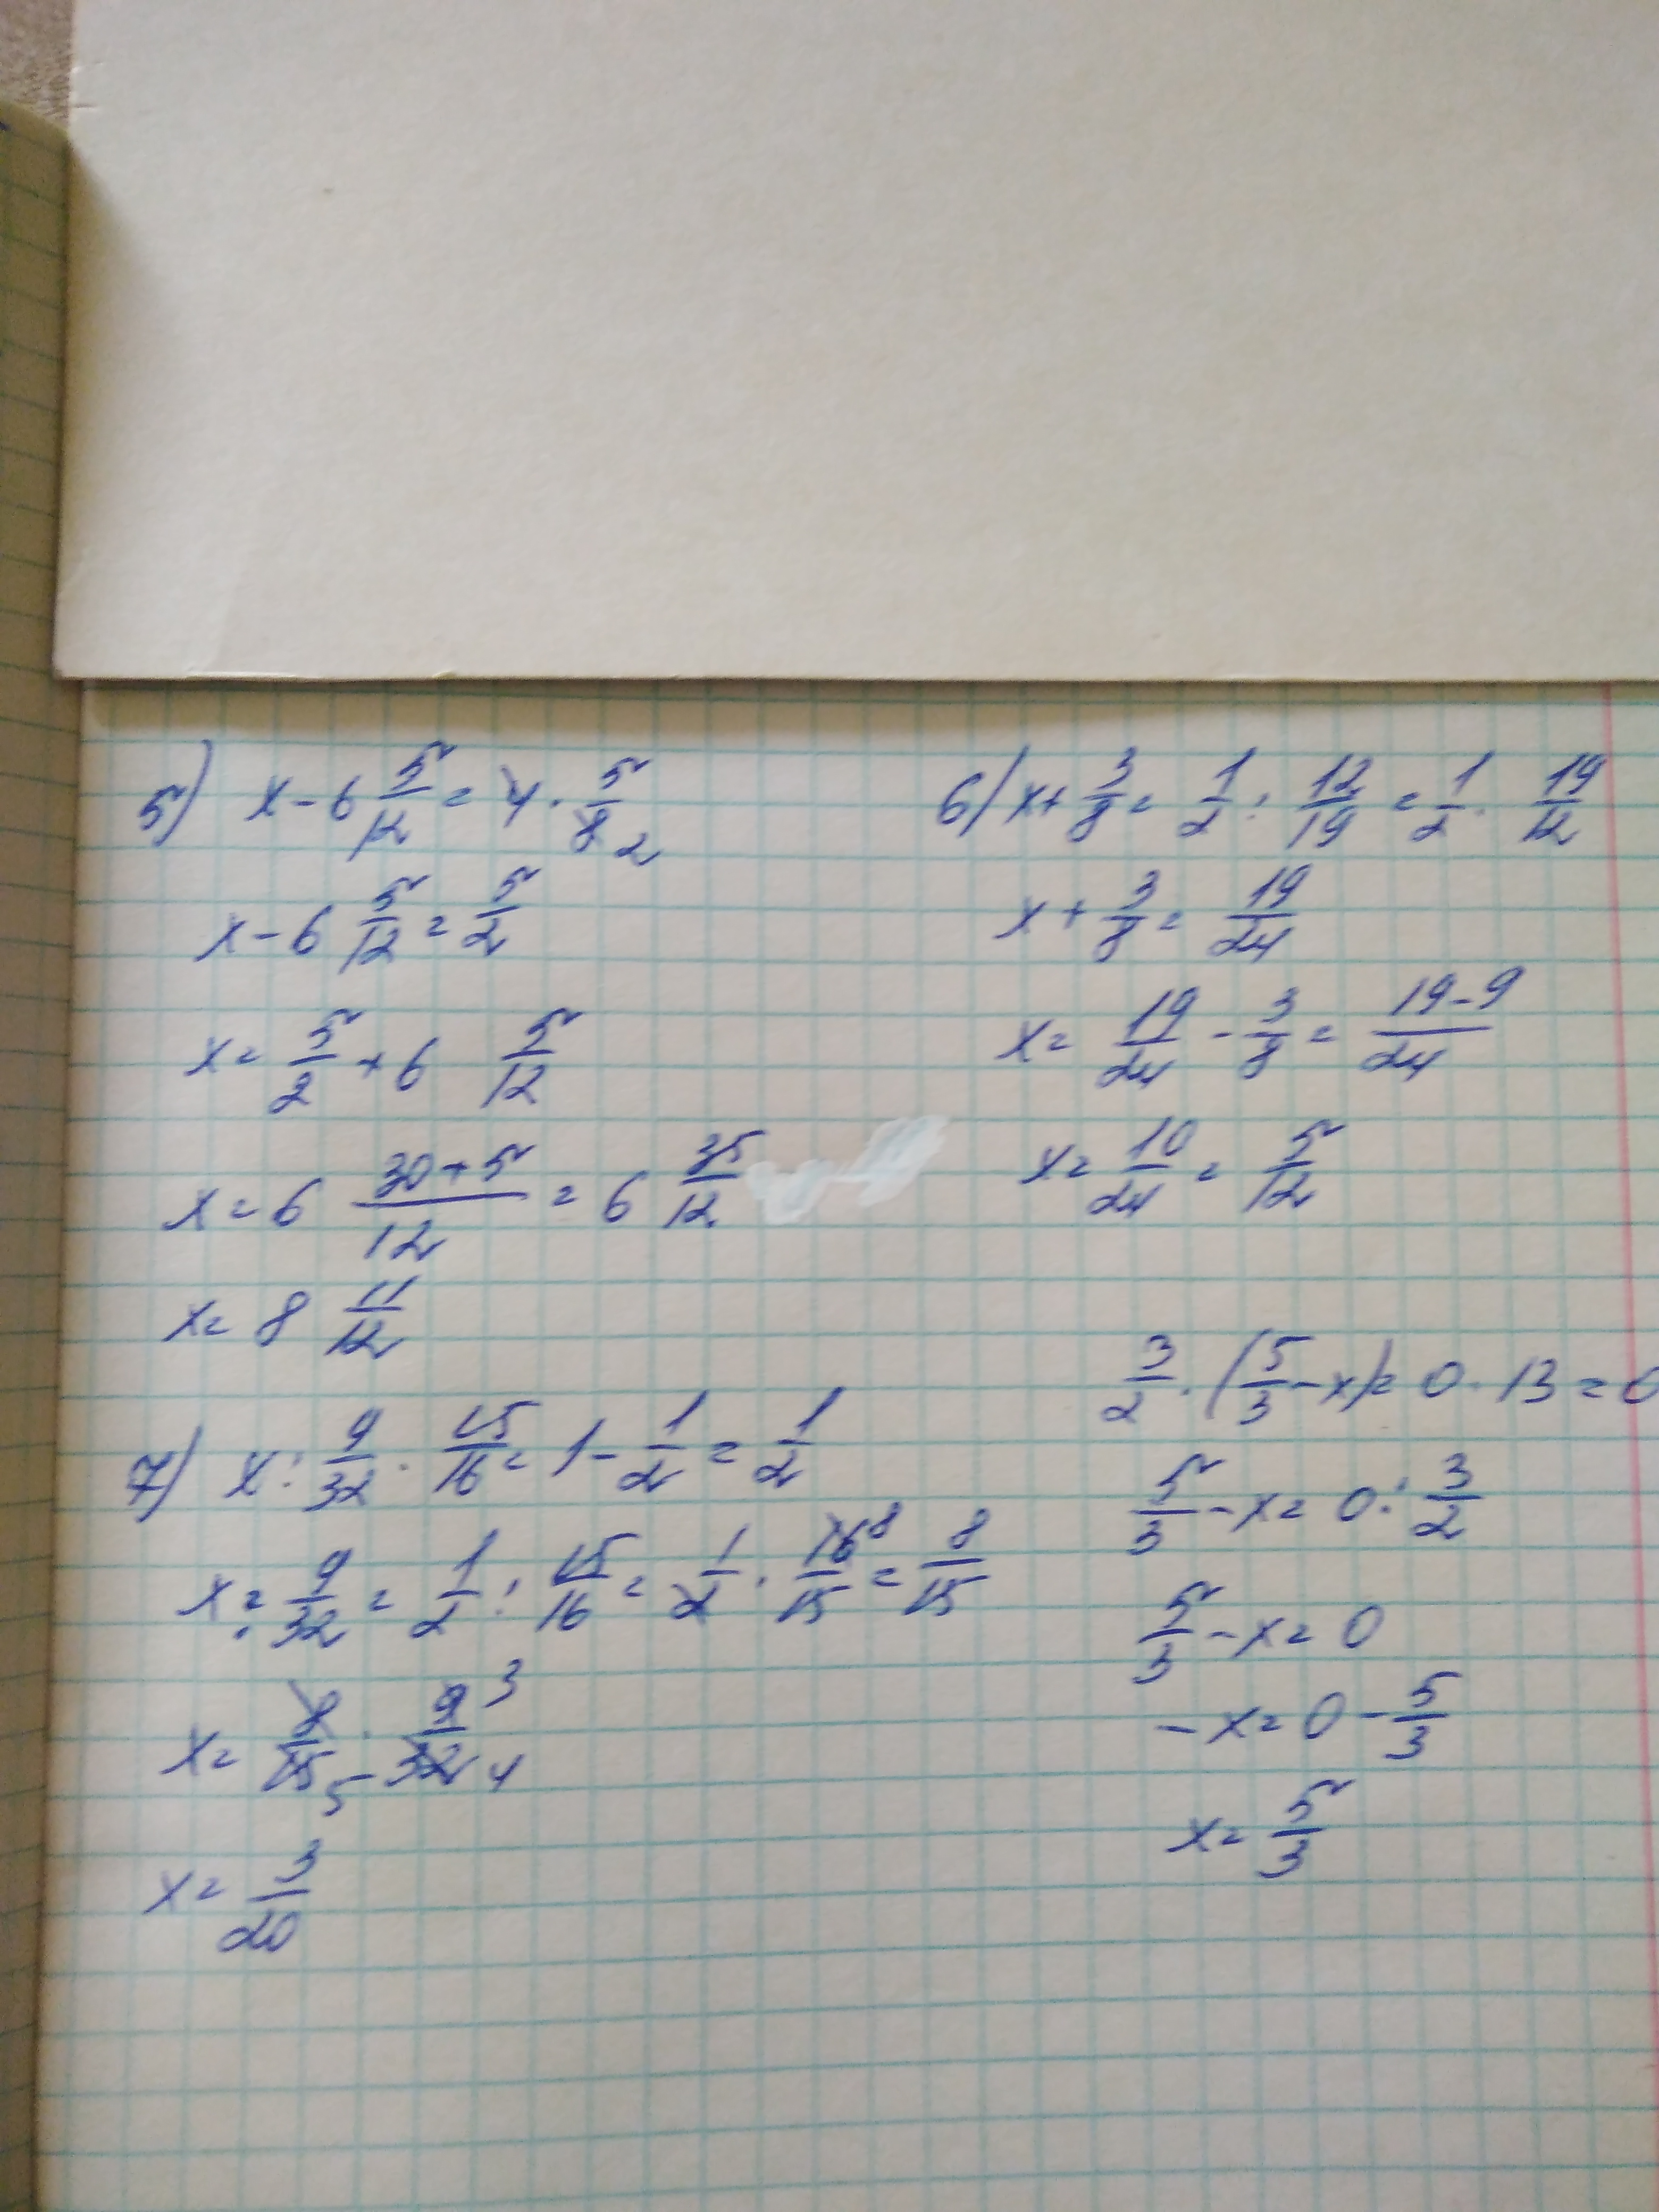 5) x - 6 5/12 = 4 · 5/8 2
x - 6 5/12 = 5/2
x = 5/2 + 6 5/12
x = 6 (30+5)/12 = 6 35/12
x = 8 11/12
6) x + 3/8 = 1/2 : 12/19 = 1/2 · 19/12
x + 3/8 = 19/24
x = 19/24 - 3/8 = (19-9)/24
x = 10/24 = 5/12
7) x : 9/32 · 15/16 = 1 - 1/2 = 1/2
x : 9/32 = 1/2 : 15/16 = 1/2 · 16 8/15 = 8/15
x = 8/15 5 · 9 3/32 4
x = 3/20
3/2 · (5/3 - x) = 0 · 13 = 0
5/3 - x = 0 : 3/2
5/3 - x = 0
- x = 0 - 5/3
x = 5/3